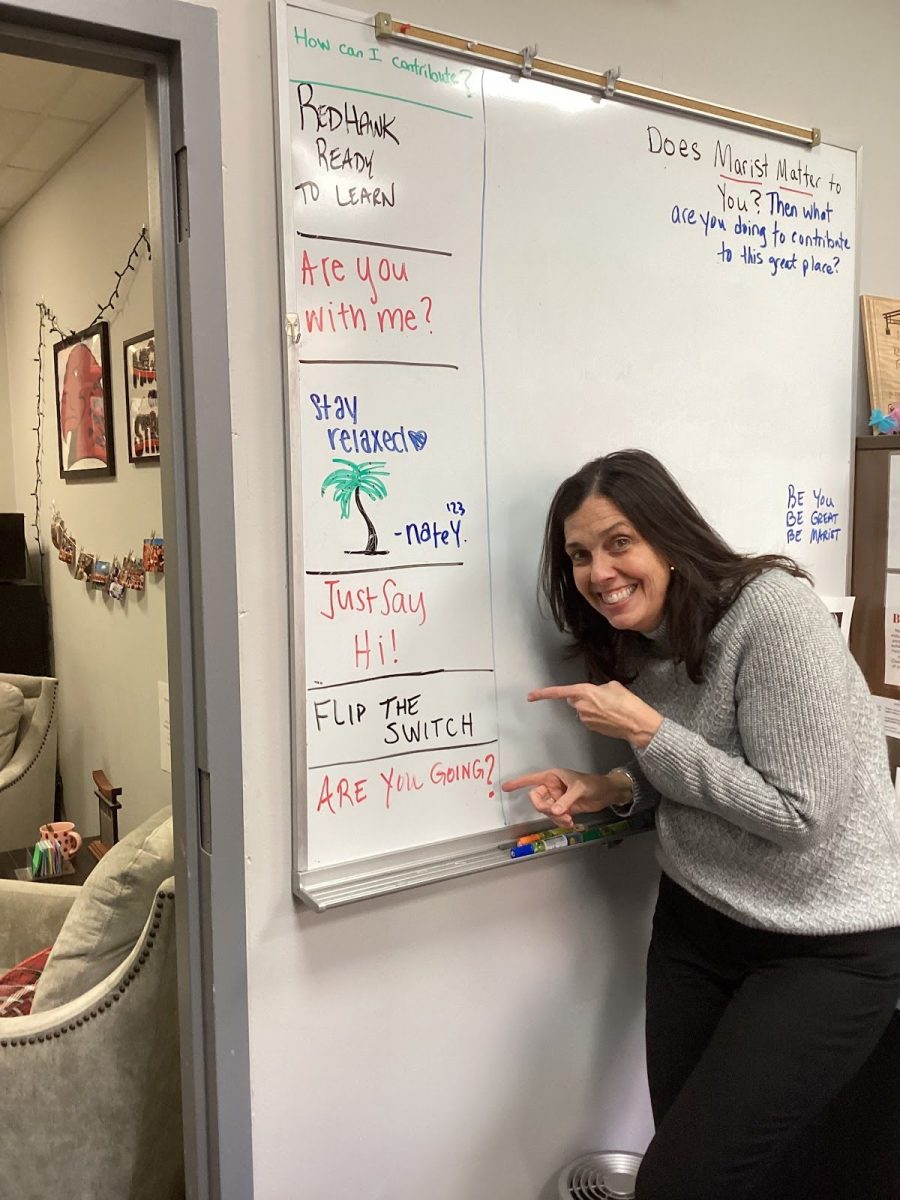 How can I contribute?
REDHAWK
READY
TO LEARN
Are you
with me?
Stay
relaxed
'23
-nateY.
Just Say
Hi!
FLIP THE
SWITCH
ARE YOU GOING?
Does Marist Matter to
You? Then what
are you doing to contribute
to this great place?
BE YOU
BE GREAT
BE MARIST